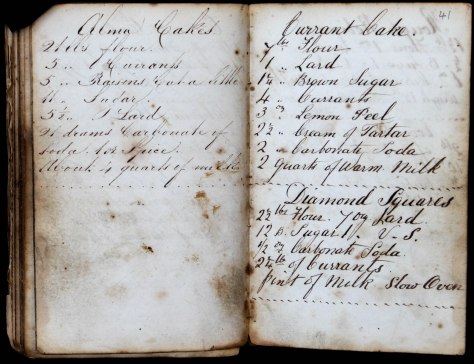 Alma Cakes
flour.
5 " Currants
5 " Raisens Cut a little
" Sugar
Lard
drams Carbonate of
Soda. Spice.
About 4 quarts of milk
41
Currant Cake.
7 lbs Flour
1 " Lard
1½ " Brown Sugar
4 " Currants
3 oz Lemon Peel
2½ " Cream of Tartar
2 " Carbonate Soda
2 Quarts of Warm Milk
Diamond Squares
2½ lbs Flour. 7 oz Lard.
12 Sugar 1. V. S.
½ oz Carbonate Soda.
of Currants.
pint of Milk Slow Oven